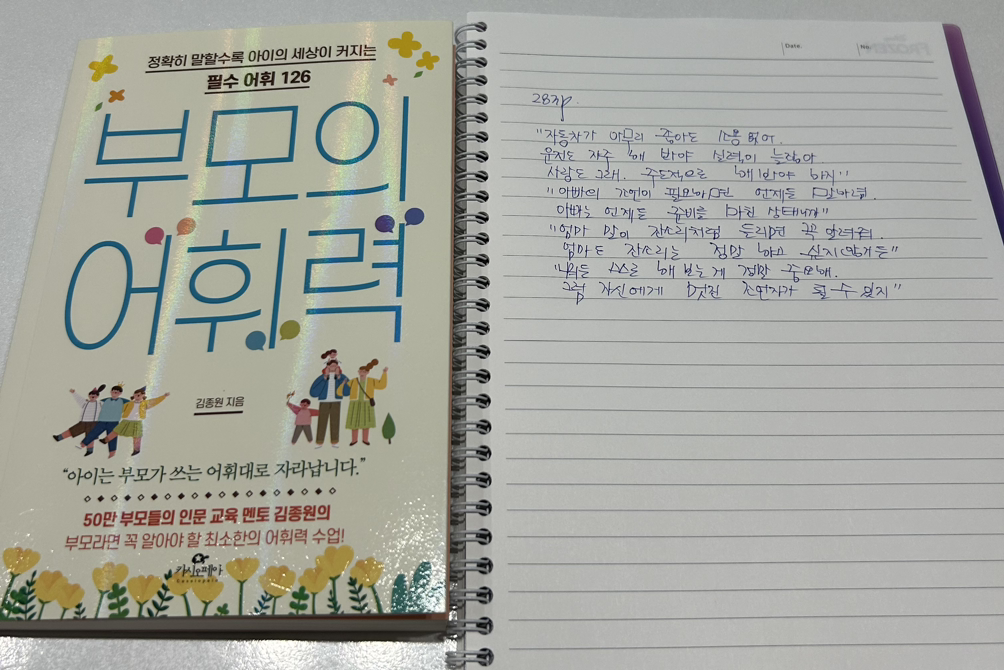 정확히 말할수록 아이의 세상이 커지는
필수 어휘 126
부모의
어휘력
김종원 지음
“아이는 부모가 쓰는 어휘대로 자라납니다.”
50만 부모들의 인문 교육 멘토 김종원의
부모라면 꼭 알아야 할 최소한의 어휘력 수업!
카시오페아
Cassiopeia
Date.
No.
FROZEN
28장.
"자동차가 아무리 좋아도 소용 없어.
운전도 자주 해 봐야 실력이 늘잖아
사랑도 그래. 주도적으로 해 봐야 하지"
"아빠의 조언이 필요하면 언제든 말하렴.
아빠는 언제든 준비를 마친 상태니까"
"엄마 말이 잔소리처럼 들리면 꼭 알려줘.
엄마도 잔소리는 정말 하고 싶지 않거든"
"뭐든 스스로 해 보는 게 정말 중요해.
그럼 자신에게 멋진 조언자가 될 수 있지"